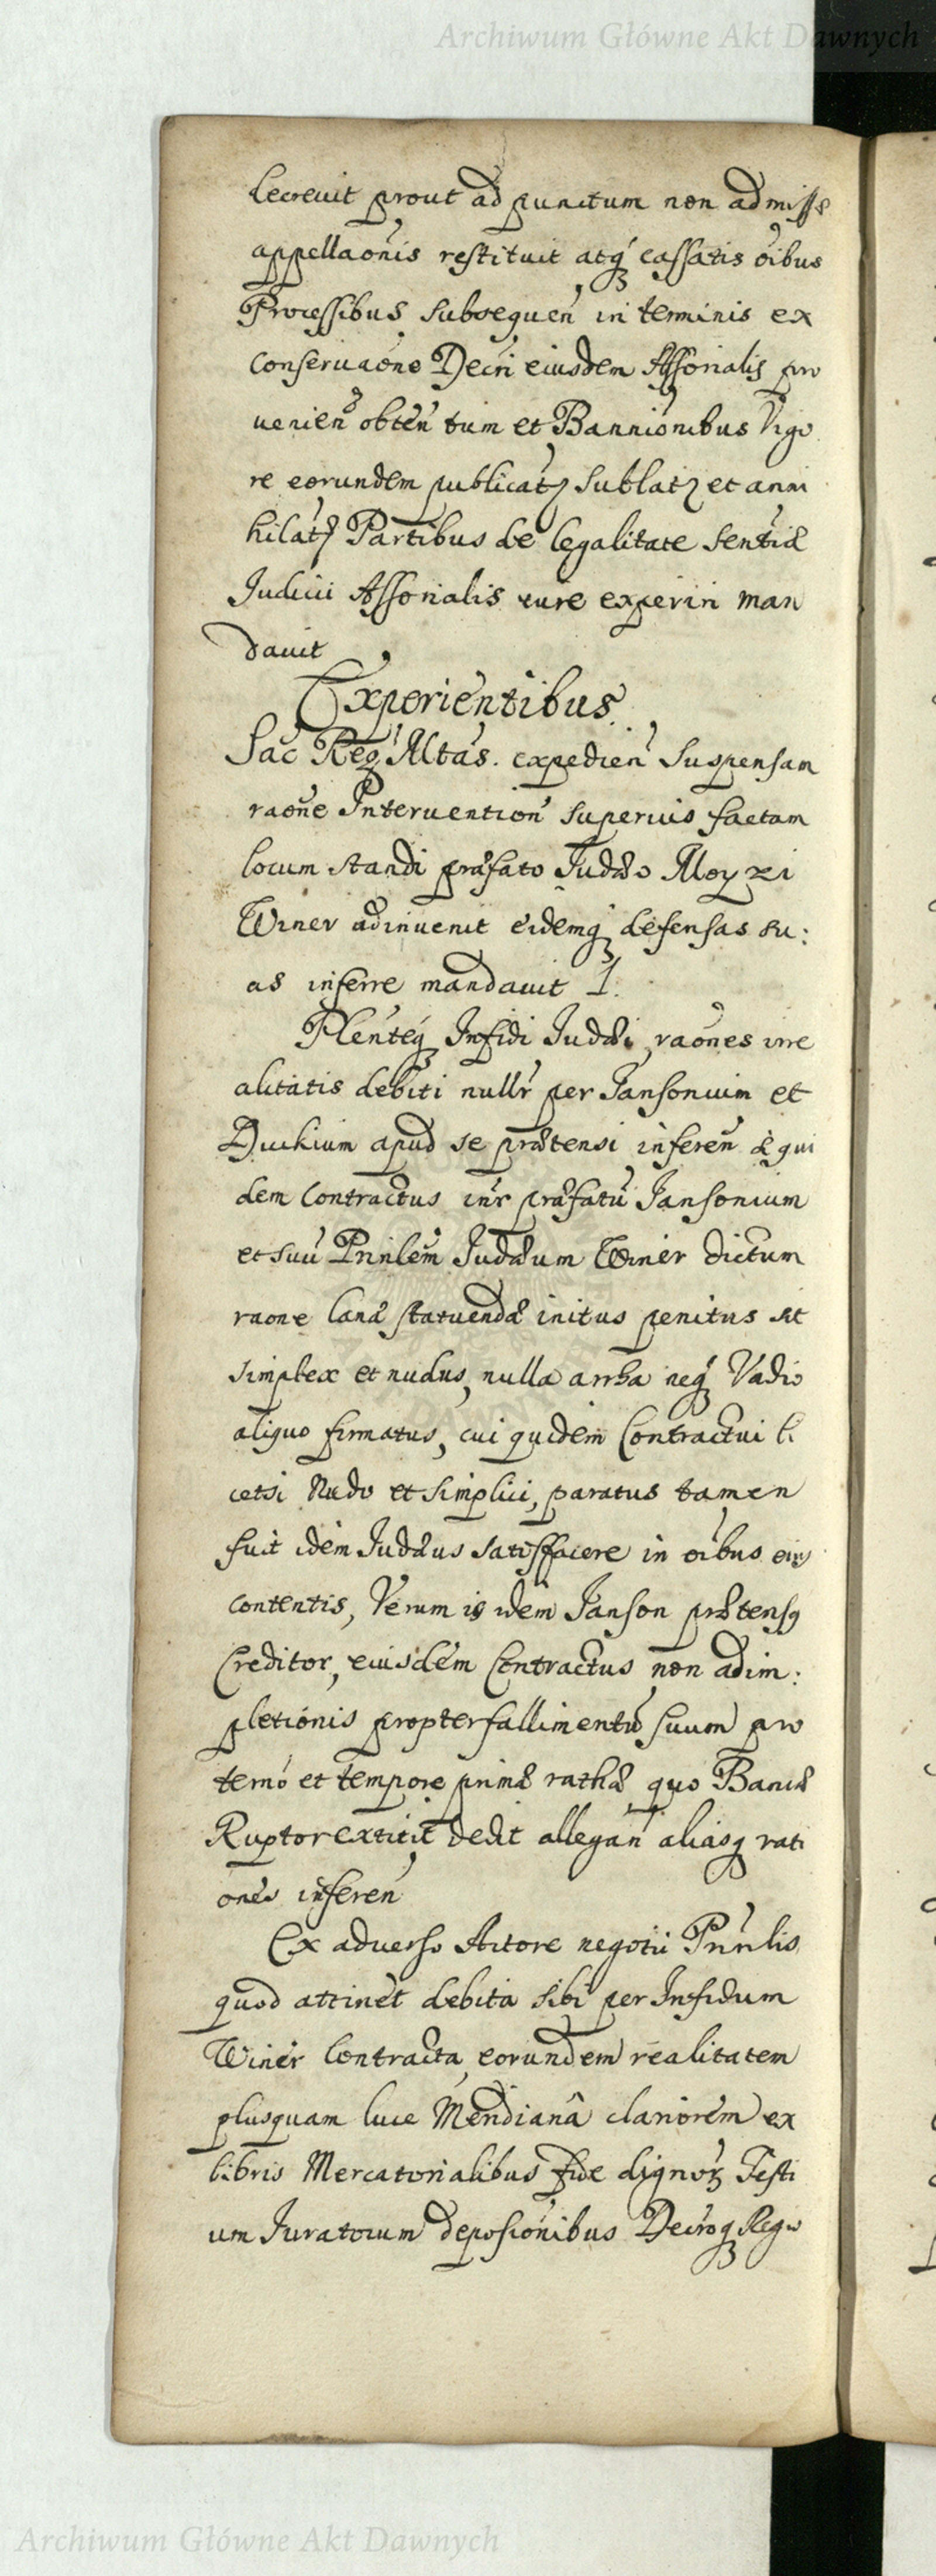 Archiwum Główne Akt Dawnych
decrevit prout ad punctum non admissæ
appellaōnis restituit atq́ cassatis oībus
Processibus subsequeń in terminis ex
conservaōne Decri eiusdem Assorialis pro
venień obteń tum et Bannionibus Vigo
re eorundem publicatꝫ sublatꝫ et anni
hilatꝫ Partibus de legalitate sentiæ
Judicii Assorialis iure experiri man
davit
Experientibus
Sac Reg Mtas. expedień suspensam
raōne Intervention superius factam
locum standi præfato Judæo Moyzi
Winer adinvenit eidemq́ defensas su:
as inferre mandavit I.
Plenteq́ Infidi Judæi, raōnes irre
alitatis debiti nullr per Jansonium et
Duckium apud se prætensi infereń æ qui
dem Contractus inr præfatū Jansonium
et suū Prinlem Judæum Winer dictum
raone lanæ statuendæ initus penitus sit
simplex et nudus, nulla arrha neq́ Vadio
aliquo firmatus, cui quidem Contractui li
cetsi Nudo et simplici, paratus tamen
fuit idem Judæus satisfacere in oībus eius
contentis, Verum is idem Janson prætensꝯ
Creditor, eiusdem Contractus non adim:
pletionis propter fallimentū suum pro
terno et tempore primæ rathæ quo Bancæ
Ruptor extitit dedit allegań aliasq́ rati
ones infereń
Ex adverso Actore negotii Prinlis
quod attinet debita sibi per Infidum
Winer contracta, eorundem realitatem
plusquam luce Meridianâ clariorem ex
libris Mercatorialibus fide dignorꝫ Testi
um Juratorum depositionibus Decroq́ Regio
Archiwum Główne Akt Dawnych